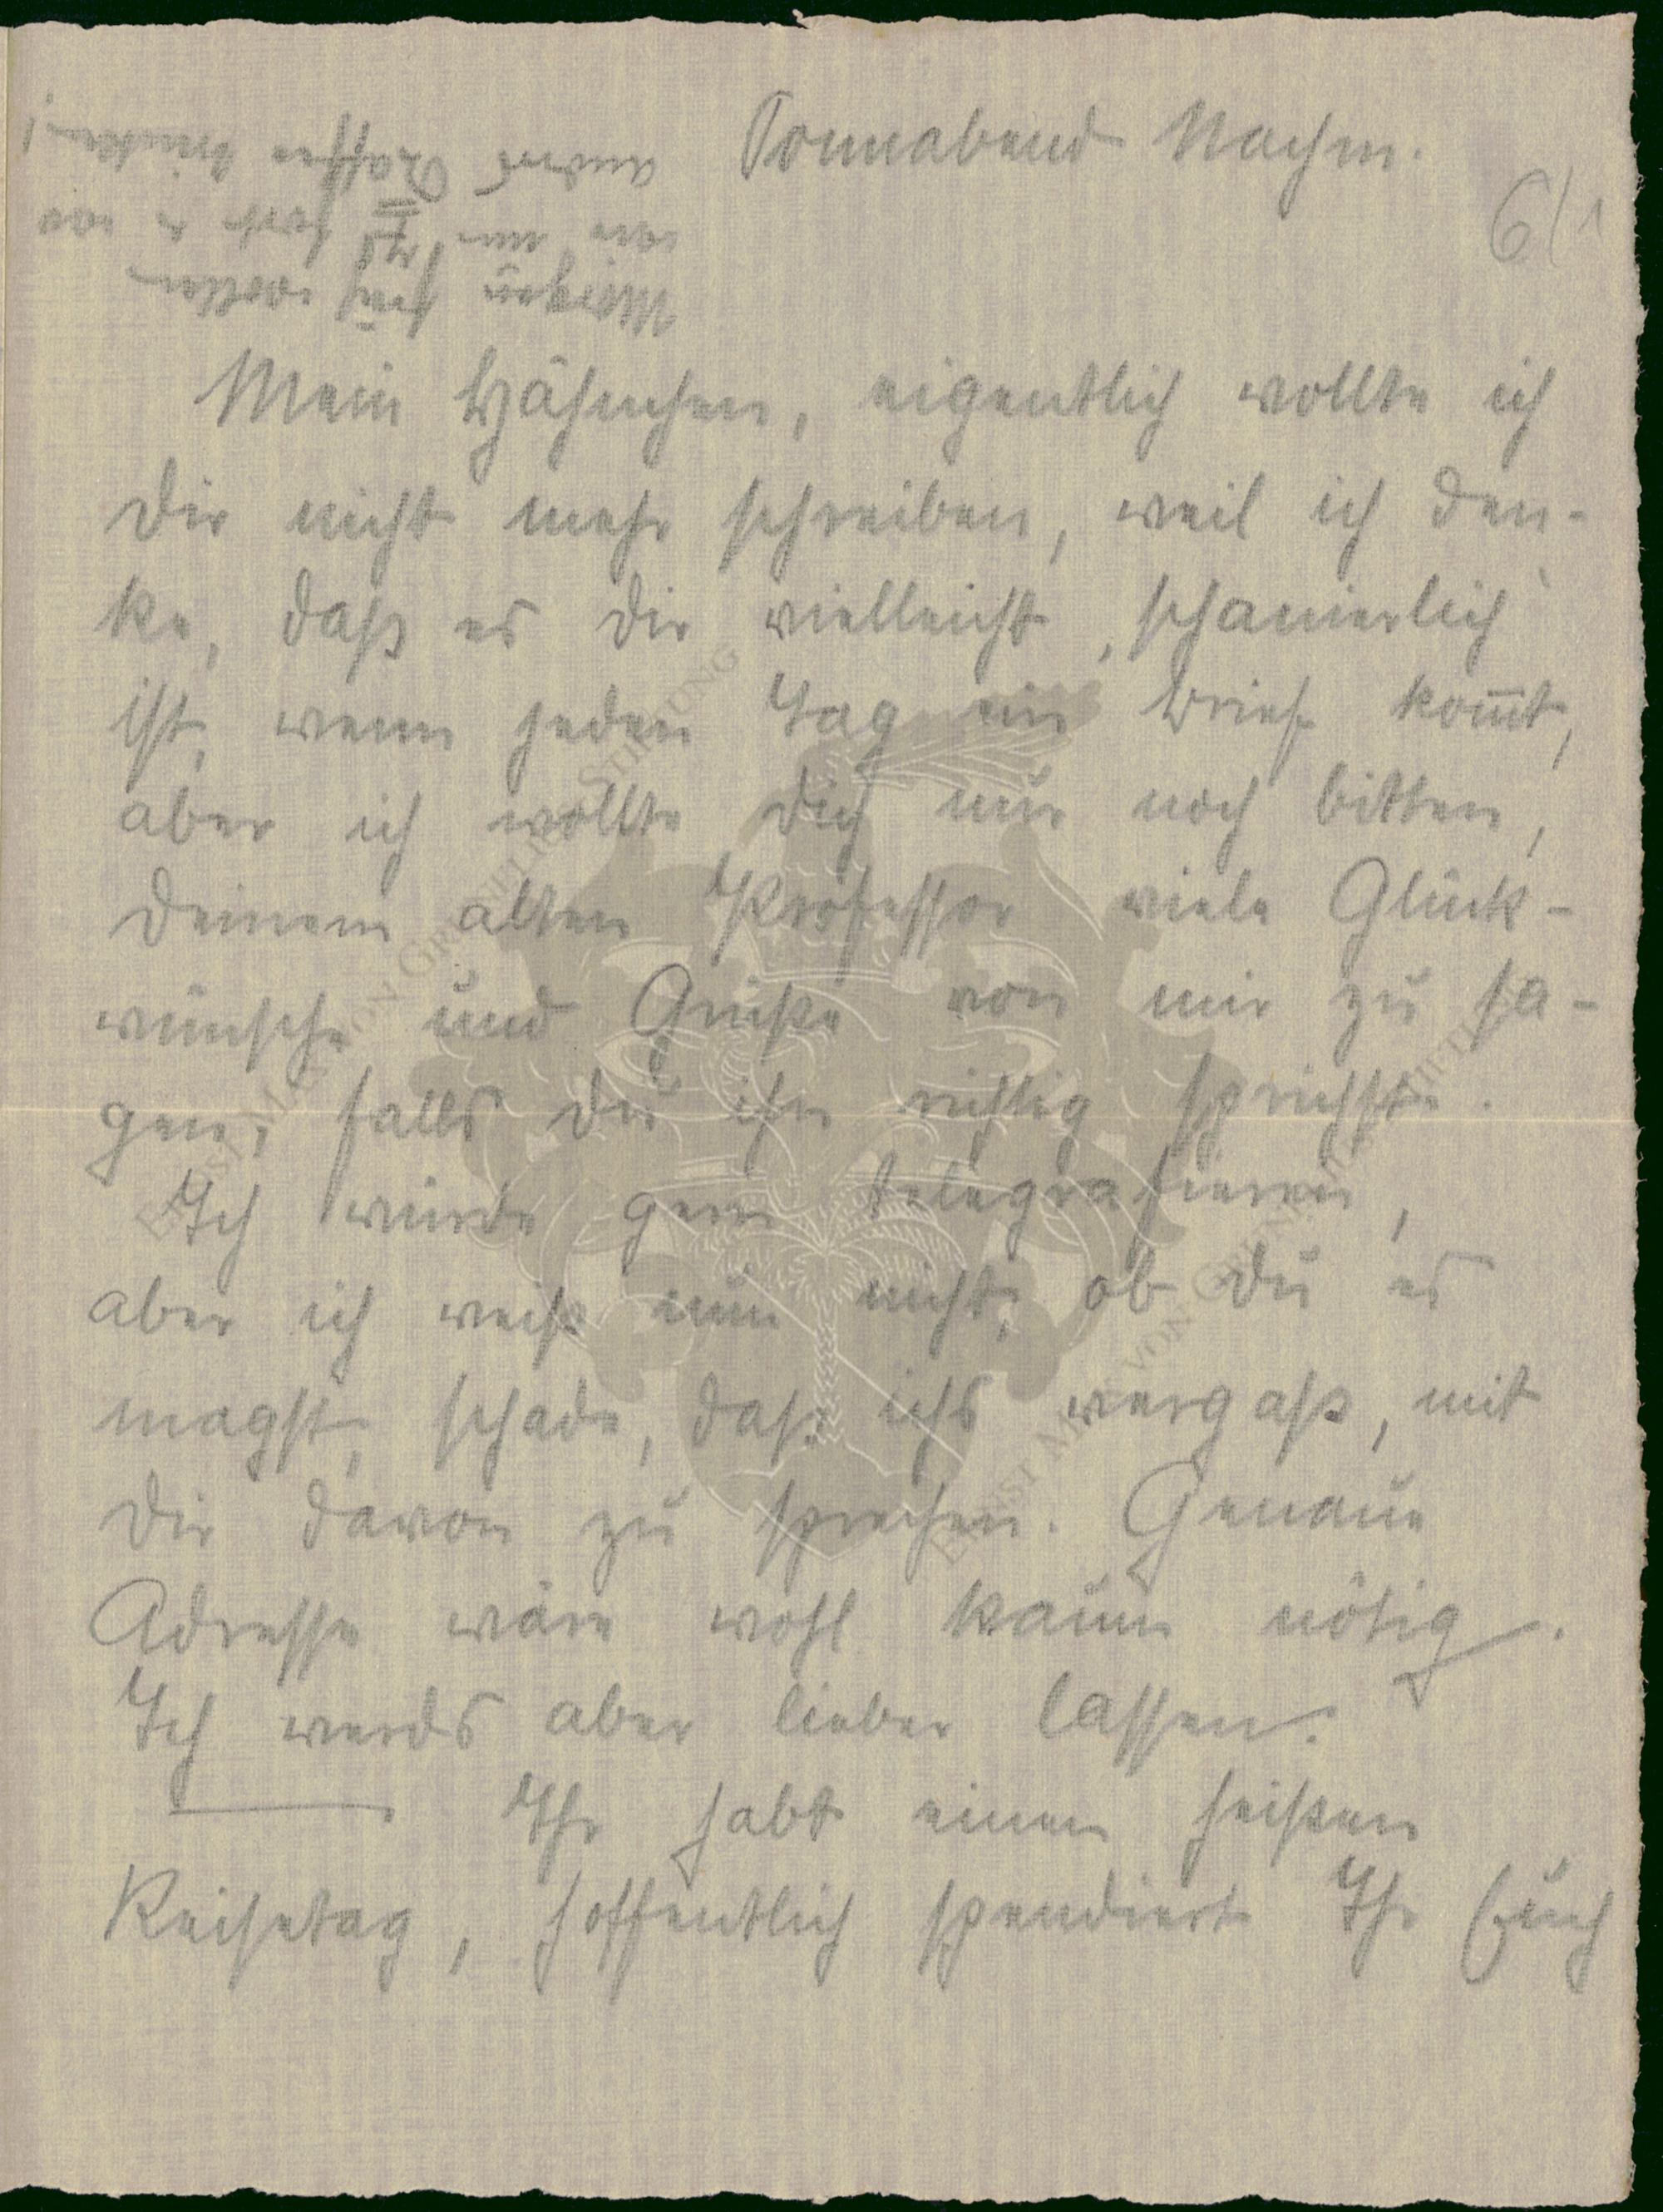 Sonnabend Nachm.
6/1
Morgen früh wollen
wir um 7 fort u wo
anders Kaffee trinken!
Mein Hähnchen, eigentlich wollte ich
Dir nicht mehr schreiben, weil ich den-
ke, daß es Dir vielleicht „schanierlich“
ist, wenn jeden Tag ein Brief kom̅t,
aber ich wollte Dich nur noch bitten,
Deinem alten Professor viele Glück-
wünsche und Grüße von mir zu sa-
gen, falls Du ihn richtig sprichst.
Ich würde gern telegrafieren,
aber ich weiß nun nicht, ob Du es
magst, schade, daß ichs vergaß, mit
Dir davon zu sprechen. Genaue
Adresse wäre wohl kaum nötig.
Ich werds aber lieber lassen.
Ihr habt einen heißen
Reisetag, hoffentlich spendiert Ihr Euch
ERNST MAGNUS VON GRIENERLICH STIFTUNG